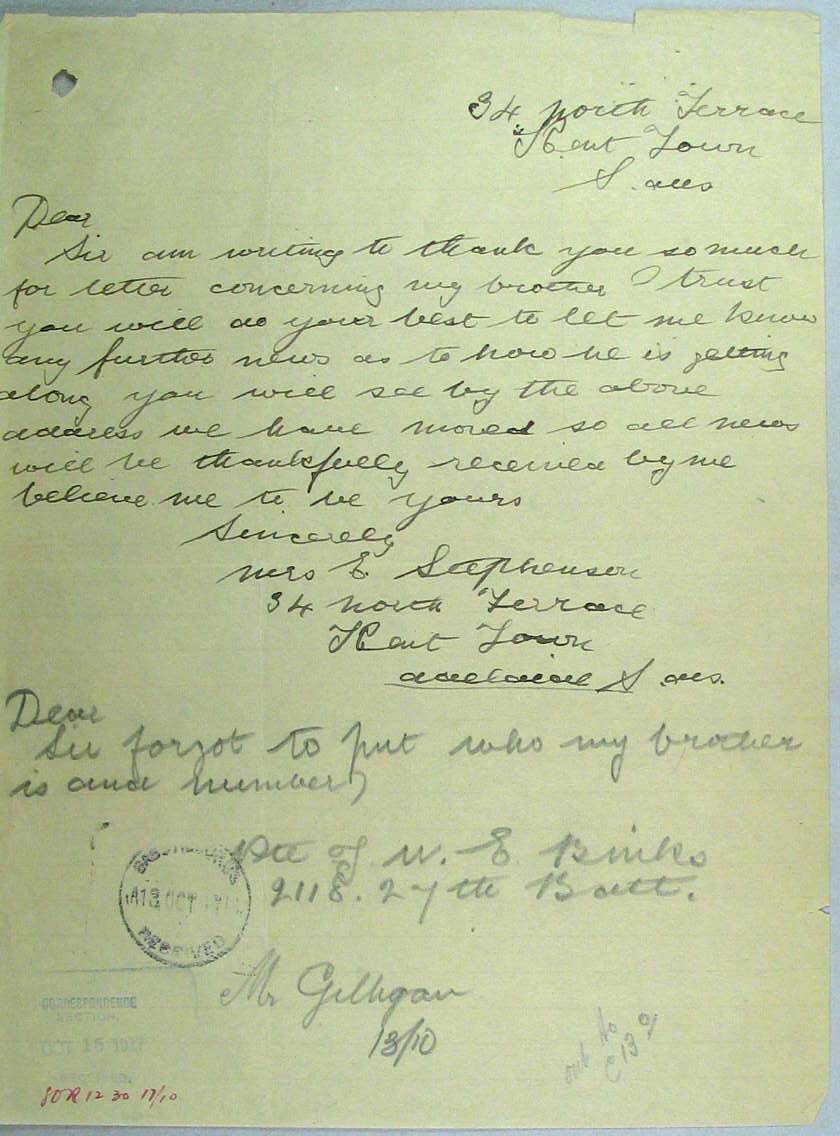 34 North Terrace
Kent Town
S. Aus
Dear
Sir am writing to thank you so much
for letter concerning my brother I trust
you will do your best to let me know
any further news as to how he is getting
along you will see by the above
address we have moved so all news
will be thankfully received by me
believe me to be yours
Sincerely
Mrs E Stephenson
34 North Terrace
Kent Town
Adelaide S. Aus.
Dear
Sir forgot to put who my brother
is and number)
Pte W. E Binks
2118. 27th Batt.
OCT
RECEIVED
Mr Gilligan
13/10
CORRESPONDENCE
SECTION
OCT 15 1917
C 139
SOR 12 30 17/10